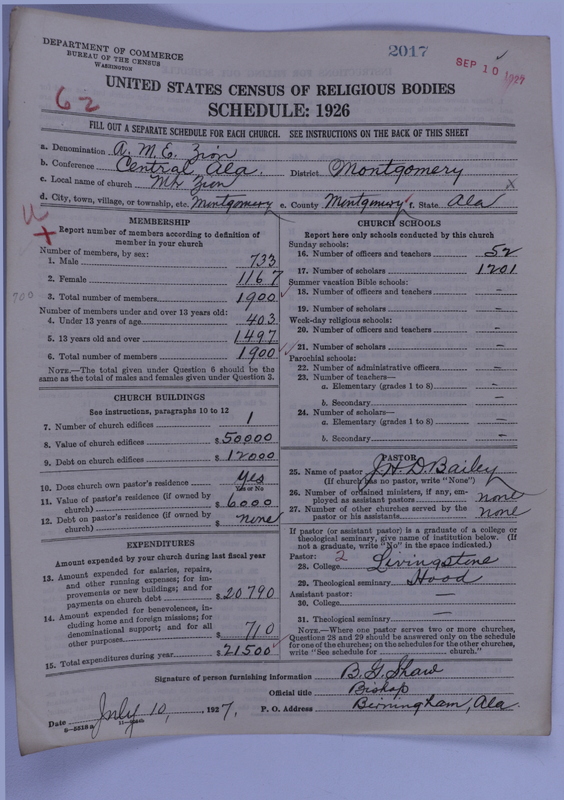 DEPARTMENT OF COMMERCE
BUREAU OF THE CENSUS
WASHINGTON
2017
SEP 10 1927
62
UNITED STATES CENSUS OF RELIGIOUS BODIES
SCHEDULE: 1926
FILL OUT A SEPARATE SCHEDULE FOR EACH CHURCH. SEE INSTRUCTIONS ON THE BACK OF THIS SHEET
a. Denomination A. M. E. Zion
b. Conference Central Ala. District Montgomery
c. Local name of church Mt. Zion
d. City, town, village, or township, etc. Montgomery e. County Montgomery f. State Ala
MEMBERSHIP
Report number of members according to definition of
member in your church
Number of members, by sex:
1. Male 733
2. Female 1167
3. Total number of members 1900
700
Number of members under and over 13 years old:
4. Under 13 years of age 403
5. 13 years old and over 1497
6. Total number of members 1900
NOTE.—The total given under Question 6 should be the
same as the total of males and females given under Question 3.
CHURCH BUILDINGS
See instructions, paragraphs 10 to 12
7. Number of church edifices 1
8. Value of church edifices $50000
9. Debt on church edifices $12000
10. Does church own pastor's residence? Yes
Yes or No
11. Value of pastor's residence (if owned by
church) $6000
12. Debt on pastor's residence (if owned by
church) $none
EXPENDITURES
Amount expended by your church during last fiscal year
13. Amount expended for salaries, repairs,
and other running expenses; for im-
provements or new buildings; and for
payments on church debt $20790
14. Amount expended for benevolences, in-
cluding home and foreign missions; for
denominational support; and for all
other purposes $710
15. Total expenditures during year $21500
CHURCH SCHOOLS
Report here only schools conducted by this church
Sunday schools:
16. Number of officers and teachers 52
17. Number of scholars 1201
Summer vacation Bible schools:
18. Number of officers and teachers —
19. Number of scholars —
Week-day religious schools:
20. Number of officers and teachers —
21. Number of scholars —
Parochial schools:
22. Number of administrative officers —
23. Number of teachers—
a. Elementary (grades 1 to 8) —
b. Secondary —
24. Number of scholars—
a. Elementary (grades 1 to 8) —
b. Secondary —
PASTOR
25. Name of pastor J. H. D. Bailey
(If church has no pastor, write "None")
26. Number of ordained ministers, if any, em-
ployed as assistant pastors none
27. Number of other churches served by the
pastor or his assistants none
If pastor (or assistant pastor) is a graduate of a college or
theological seminary, give name of institution below. (If
not a graduate, write "No" in the space indicated.)
Pastor: 2
28. College Livingstone
29. Theological seminary Hood
Assistant pastor:
30. College —
31. Theological seminary —
NOTE.—Where one pastor serves two or more churches,
Questions 28 and 29 should be answered only on the schedule
for one of the churches; on the schedules for the other churches,
write "See schedule for church."
Signature of person furnishing information B. G. Shaw
Official title Bishop
Date July 10, 1927. P. O. Address Birmingham, Ala.
8—5518a